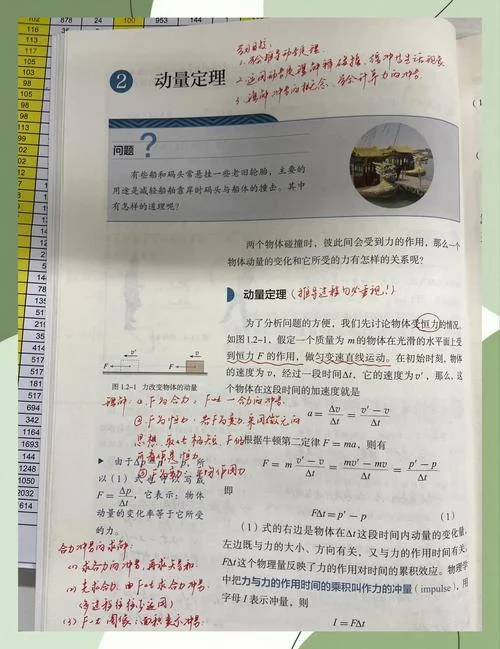 102 878 24 100 100
116
113
117
105
102
98
103
108
105
2 动量定理
1. 会推导动量定理.
2. 运用动量定理解释碰撞、缓冲等生活现象
3. 理解冲量的概念，会计算力的冲量.
问题?
有些船和码头常悬挂一些老旧轮胎，主要的
用途是减轻船舶靠岸时码头与船体的撞击。其中
有怎样的道理呢？
两个物体碰撞时，彼此间会受到力的作用，那么一个
物体动量的变化和它所受的力有怎样的关系呢？
动量定理 (推导过程
为了分析问题的方便，我们先讨论物体受恒力的情况。
如图 1.2-1，假定一个质量为 m 的物体在光滑的水平面上受
到恒力 F 的作用，做匀变速直线运动。在初始时刻，物体
的速度为 v，经过一段时间 Δt，它的速度为 v′，那么，这
个物体在这段时间的加速度就是
a = Δv/Δt = (v′ - v)/Δt
v v′
F F
图 1.2-1 力改变物体的动量
理解: ① F为合力，F-t — 合力的冲量.
② F为恒力，若F为变力，采用微元的
思想，取t极短，F仍
可看作是恒力
③ F为变力: 平均作用力
根据牛顿第二定律 F = ma，则有
F = m (v′ - v)/Δt = (mv′ - mv)/Δt = (p′ - p)/Δt
即
FΔt = p′ - p (1)
▶ 由于 Δp = p′ - p，所
以（1）式也可以写成
F = Δp/Δt，它表示：物体
动量的变化率等于它所受
的力。
（1）式的右边是物体在 Δt 这段时间内动量的变化量，
左边既与力的大小、方向有关，又与力的作用时间有关。
FΔt 这个物理量反映了力的作用对时间的累积效应。物理学
中把力与力的作用时间的乘积叫作力的冲量（impulse），用
字母 I 表示冲量，则
I = FΔt
合力冲量的求解:
(1) 求各力的冲量，再求矢量和
(2) 先求合力，由F-t求合力冲量.
(多过程往往不适用)
(3) F-t 图象: 面积表示冲量.